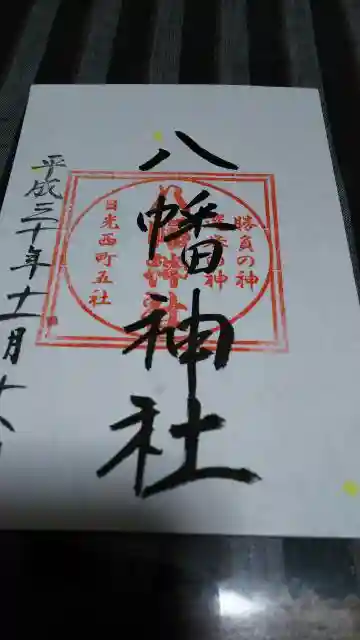 八幡神社
勝負の神
八幡神社
日光西町五社
平成三十年十一月十八